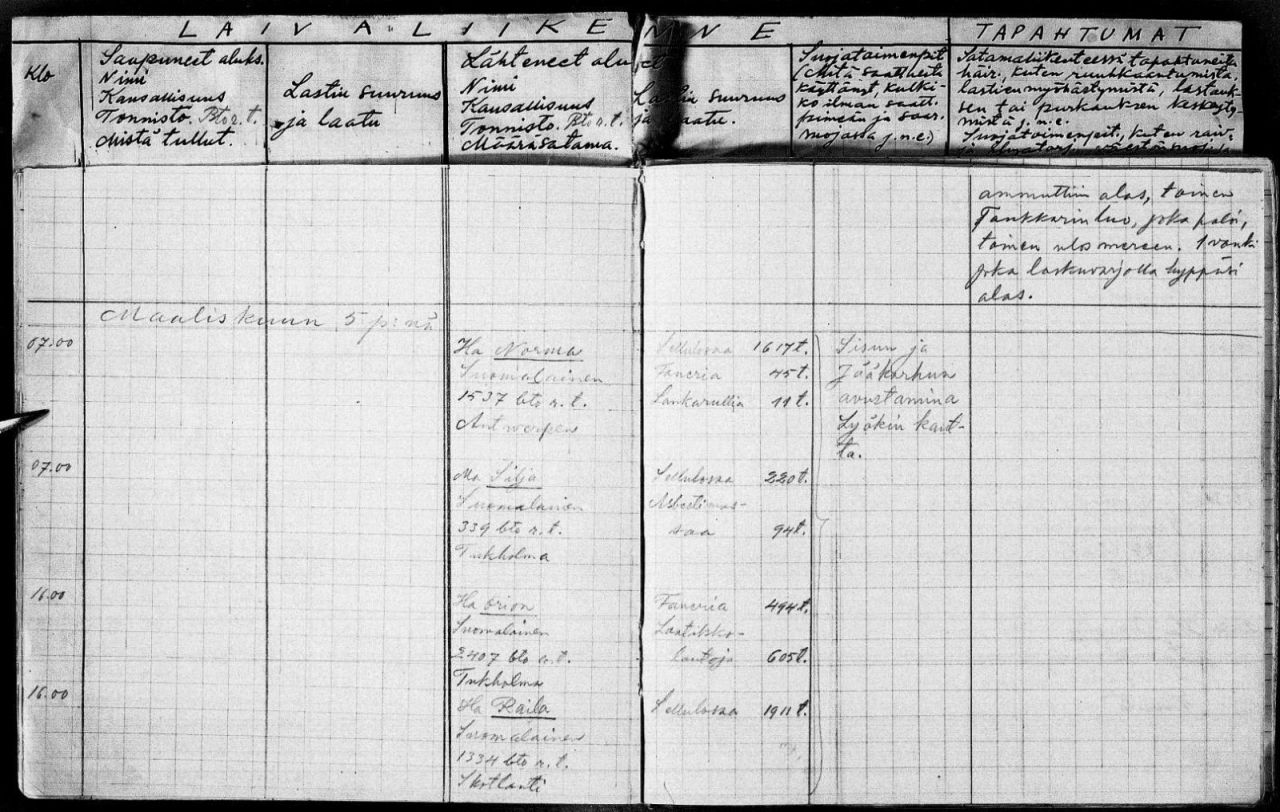 LAIVALIIKENNE
TAPAHTUMAT
Klo
Saapuneet aluks.
Nimi
Kansallisuus
Tonnisto. Bto r. t.
Mistä tullut.
Lastin suuruus
ja laatu
Lähteneet aluk
Nimi
Kansallisuus
Tonnisto. Bto r. t.
Määräsatama.
Lastin suuruus
ja laatu.
Suojatoimenpit
(Mitä saattueita
käyttänyt, kulki-
ko ilman saatt.
j.n.e.)
Satamaliikenteessä tapahtuneita
häir., kuten ruuhkaantumista,
lastien myöhästymistä, lastauk-
sen tai purkauksen keskeyty-
mistä j.n.e.
Suojatoimenpit., kuten
ammuttiin alas, toinen
Tankkarin luo, joka paloi,
toinen ulos mereen. 1 vanki
joka laskuvarjolla hyppäsi
alas.
Maaliskuun 5 p:nä
07.00
Ha Norma
Suomalainen
1537 bto r. t.
Antwerpen
Sellulosaa 1617 t.
Faneria 45 t.
Lankarullia 11 t.
Sisun ja
Jääkarhun
avustamina
Lyökin kaut-
ta.
07.00
Ma Silja
Suomalainen
339 bto r. t.
Tukholma
Sellulosaa 220 t.
Asbestimas-
saa 94 t.
16.00
Ha Orion
Suomalainen
2407 bto r. t.
Tukholma
Faneria 494 t.
Laatikko-
lautoja 605 t.
16.00
Ha Raila
Suomalainen
1334 bto r. t.
Skotlanti
Sellulosaa 1911 t.